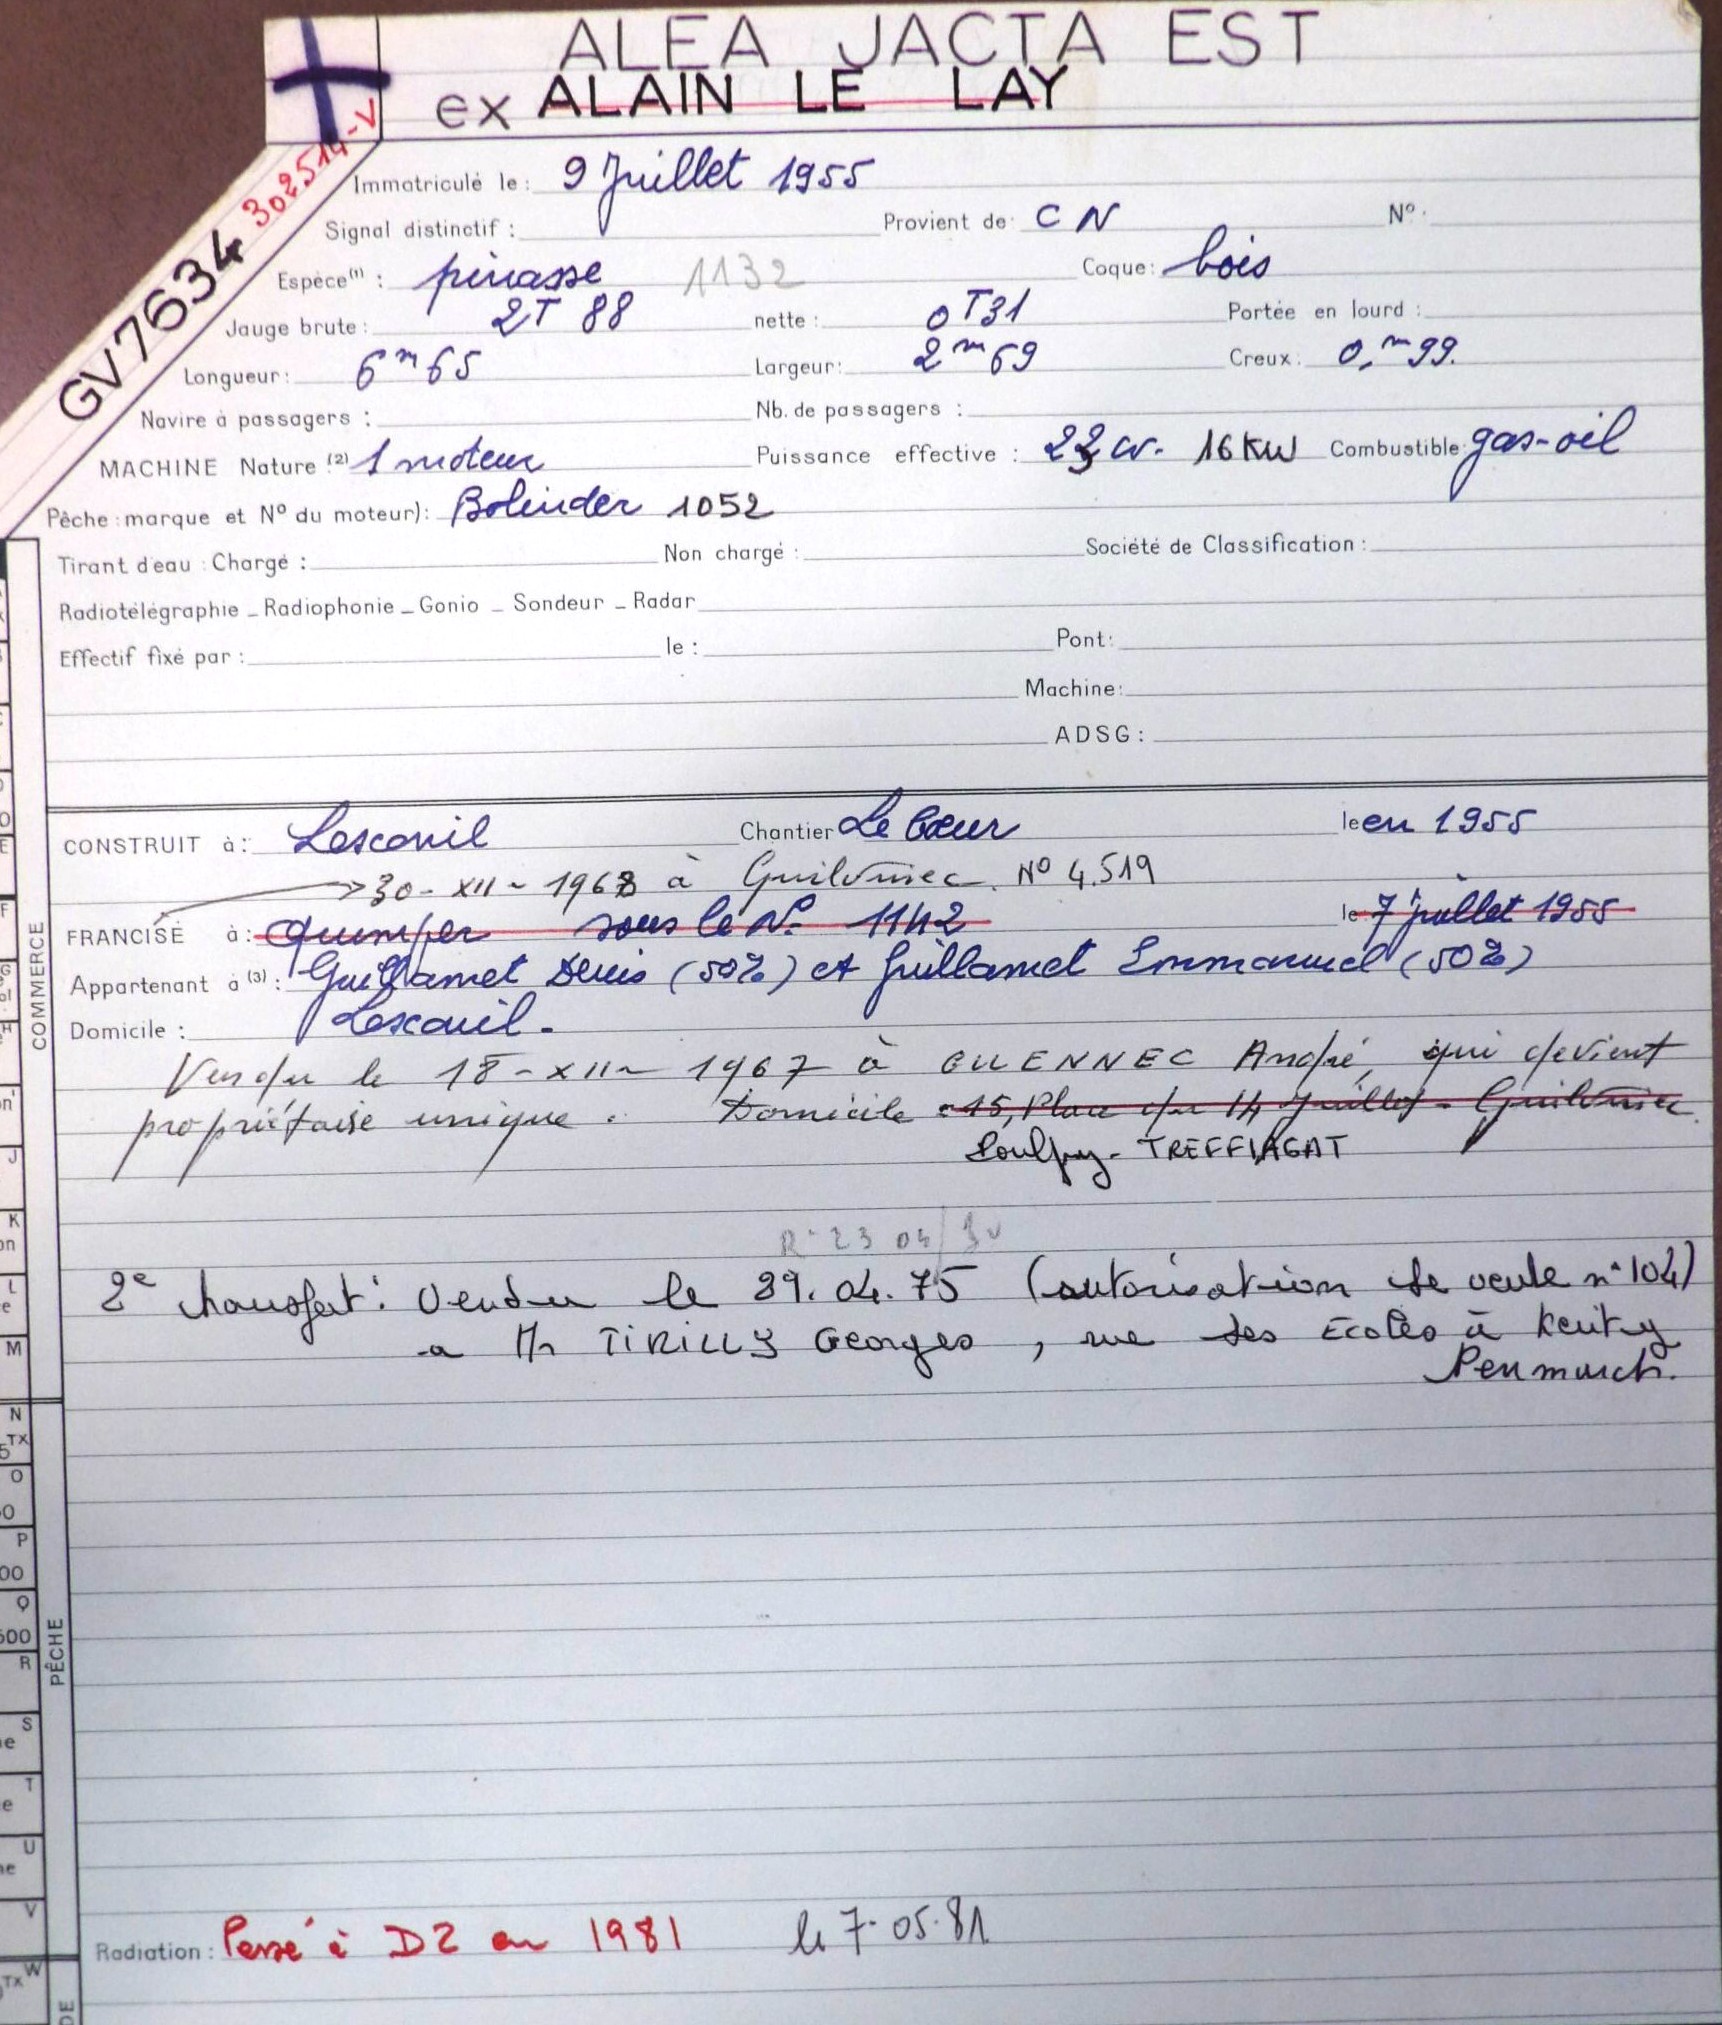 ALEA JACTA EST
ex ALAIN LE LAY
302514-V
GV7634
Immatriculé le : 9 Juillet 1955
Signal distinctif : Provient de : C N N° :
Espèce (1) : pinasse 1132 Coque : bois
Jauge brute : 2T 88 nette : 0T31 Portée en lourd :
Longueur : 6m65 Largeur : 2m69 Creux : 0,m99.
Navire à passagers : Nb. de passagers :
MACHINE Nature (2) 1 moteur Puissance effective : 22 cv. 16 KW Combustible : gas-oil
Pêche : marque et N° du moteur) : Bolinder 1052
Tirant d'eau : Chargé : Non chargé : Société de Classification :
Radiotélégraphie _ Radiophonie _ Gonio _ Sondeur _ Radar
Effectif fixé par : le : Pont :
Machine :
ADSG :
CONSTRUIT à : Lesconil Chantier Le Cœur le en 1955
30-XII-1968 à Guilvinec. N° 4.519
FRANCISÉ à : Quimper sous le N° 1142 le 7 juillet 1955
Appartenant à (3) : Guillamet Denis (50%) et Guillamet Emmanuel (50%)
Domicile : Lesconil.
Vendu le 18-XII-1967 à GUENNEC André, qui devient
propriétaire unique. Domicile 15, Place du 14 Juillet - Guilvinec.
TREFFIAGAT
R 23 04
2e transfert : Vendu le 29.04.75 (autorisation de vente n° 104)
a Mr TIRILLY Georges, rue des Ecoles à Kerity
Penmarch.
COMMERCE
J
K
on
L
e
M
N
TX
O
P
00
Q
500
R
PÊCHE
S
e
T
e
U
ne
V
Radiation : Passé à D2 en 1981 le 7.05.81
TX W
DE